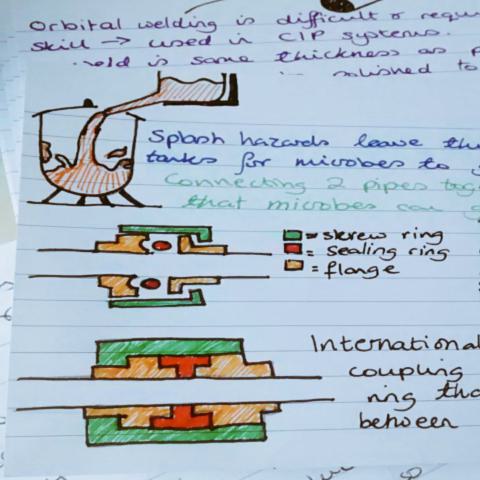 Orbital welding is difficult & requ
skill → used in CIP systems.
weld is same thickness as p
polished to
Splash hazards leave the
tanks for microbes to g
Connecting 2 pipes tog
that microbes can g
= skrew ring
= sealing ring
= flange
International
coupling
ring tha
between